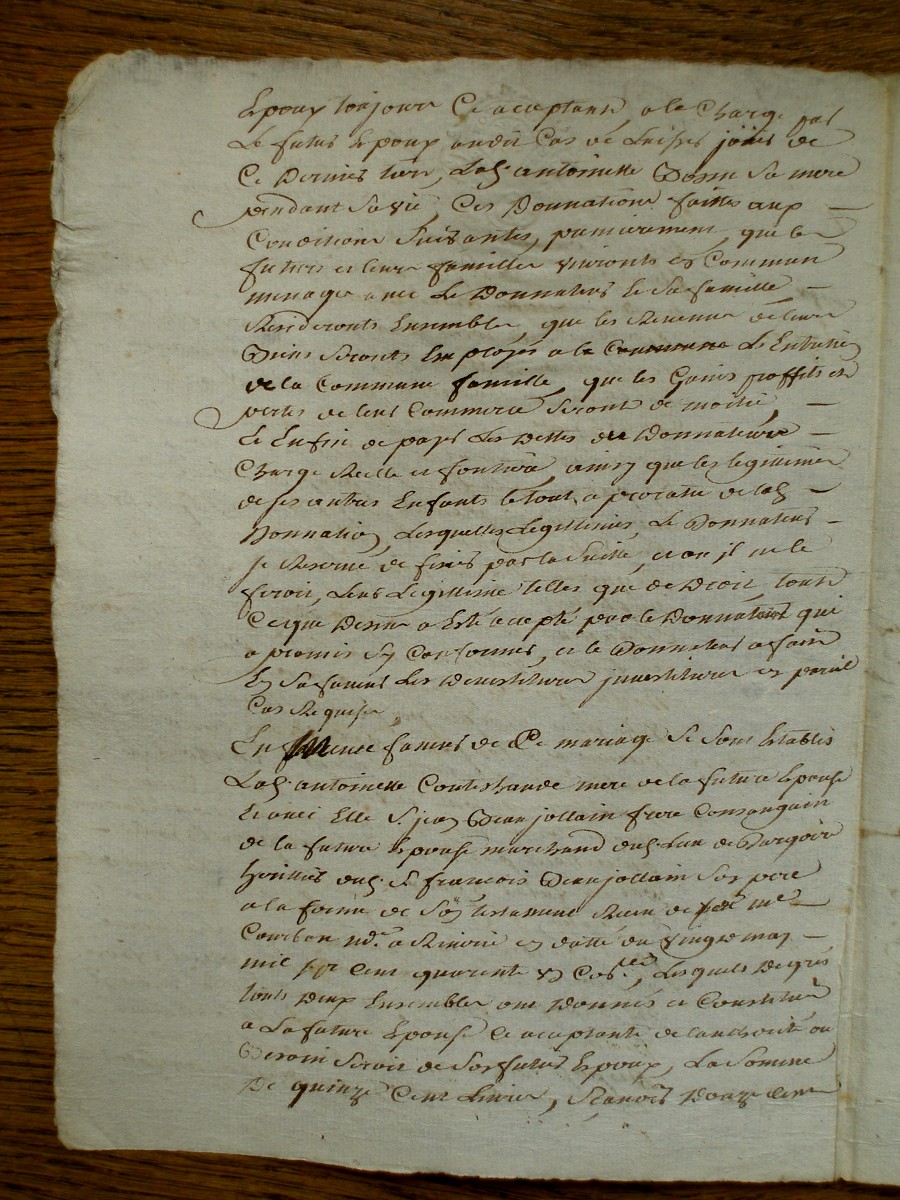 Epoux toujours Ce acceptant, a la Charge par
Le futur Epoux audit Cas de Laisser jouir de
Ce Dernier tiers, Lad. antoinette sa mere
pendant Sa vie, Ces Donnations faittes aux
Conditions Suivantes, premierement, que les
futurs et leurs familles vivront en Commun
menage avec Le Donnateur Et Sa famille
Resideronts Ensembles, que les Revenus de leurs
Biens Seronts Employés a la Commune Et Entretien
de la Commune famille, que les Gains proffits et
pertes de leur Commerce Seront de moitié,
Et Enfin de payer Les Dettes du Donnateur
Charge Reelle et fontiere, ainsy que les legittimes
de ses autres Enfants le tout a procatte de lad.
Donnation, Lesquelles Legittimes, Le Donnateur
se Reserve de fixer par la Suitte, et ou il ne le
feroit, Leur Legittime telles que de Droit, tout
Ce que Dessus a Esté accepté par le Donnataire qui
a promis S'y Conformer, et le Donnateur a fait
En Sa faveur Les Devestitures investitures en pareil
Cas Requises,
En faveur de Ce mariage Se Sont Etablis
Lad. antoinette mere de la future Epouse
Et avec Elle S. jean Beaujollain frere Consanguin
de la future Epouse marchand dud. Lieu de Burgoin
heritier dud. S. françois Beaujollain Son pere
a la forme de Son testament Recu de me
Courbon nre. a en datte du vingt may
mil sept Cent quarente Lesquels De grés
touts Deux Ensembles ont Donnés et Constitué
a La future Epouse Ce acceptante de l'authorité ou
Besoin Seroit de Son futur Epoux, La Somme
De quinze Cent Livres, Scavoir Douze Cent